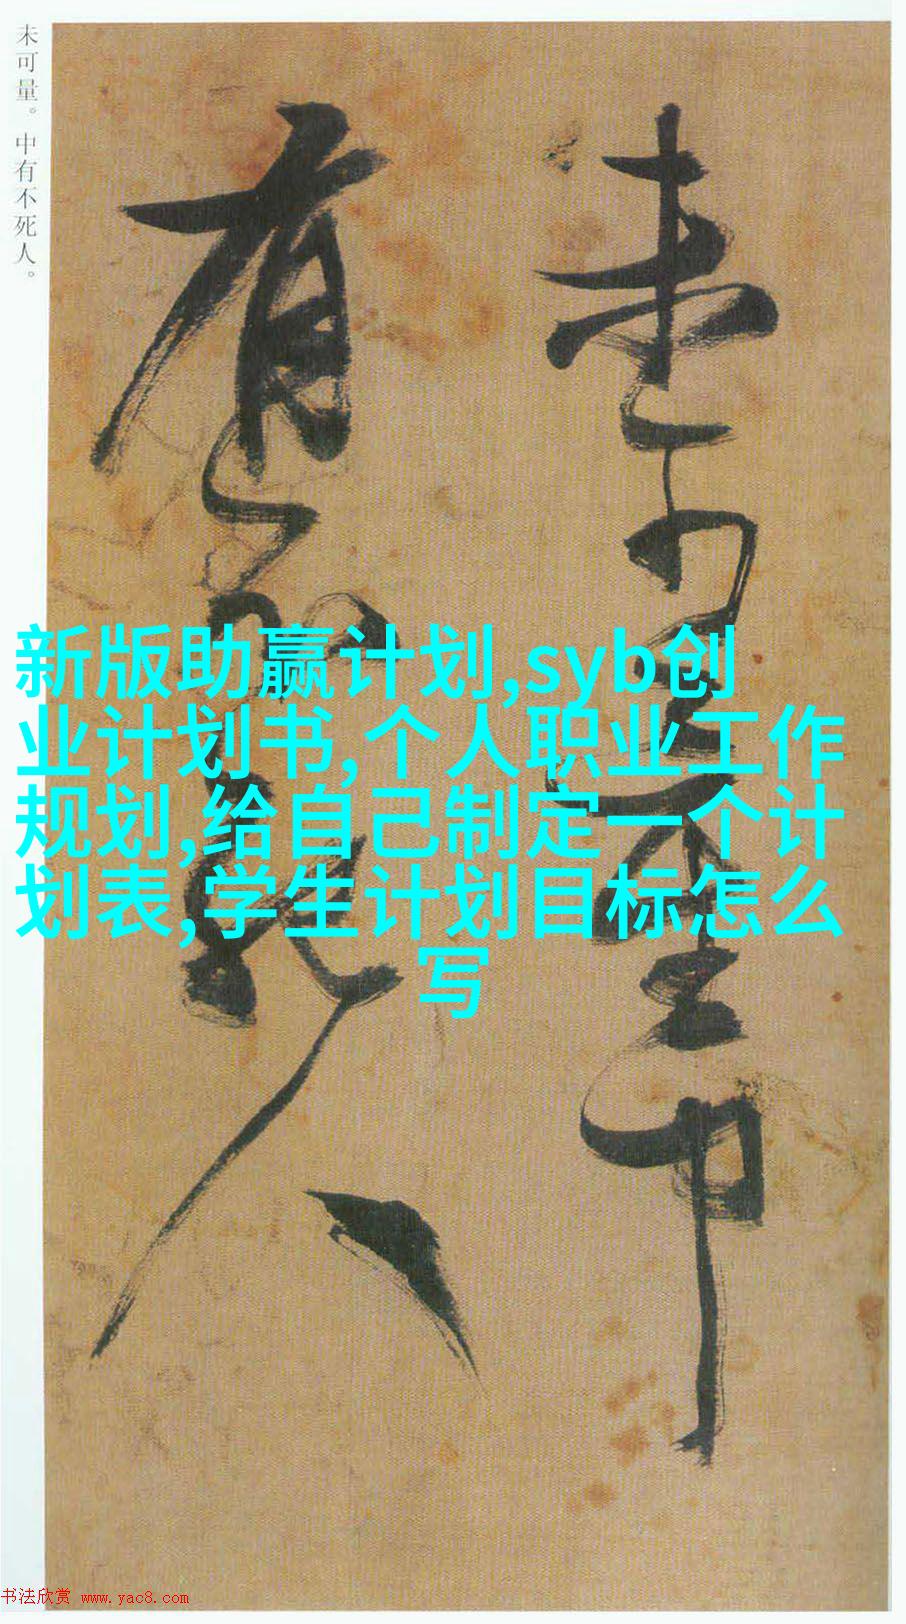 未可量。中有不死人。
未可量不至中
有不死人
新版助赢计划,syb创
业计划书,个人职业工作
规划,给自己制定一个计
划表,学生计划目标怎么
写
书法欣赏 www.yac8.com